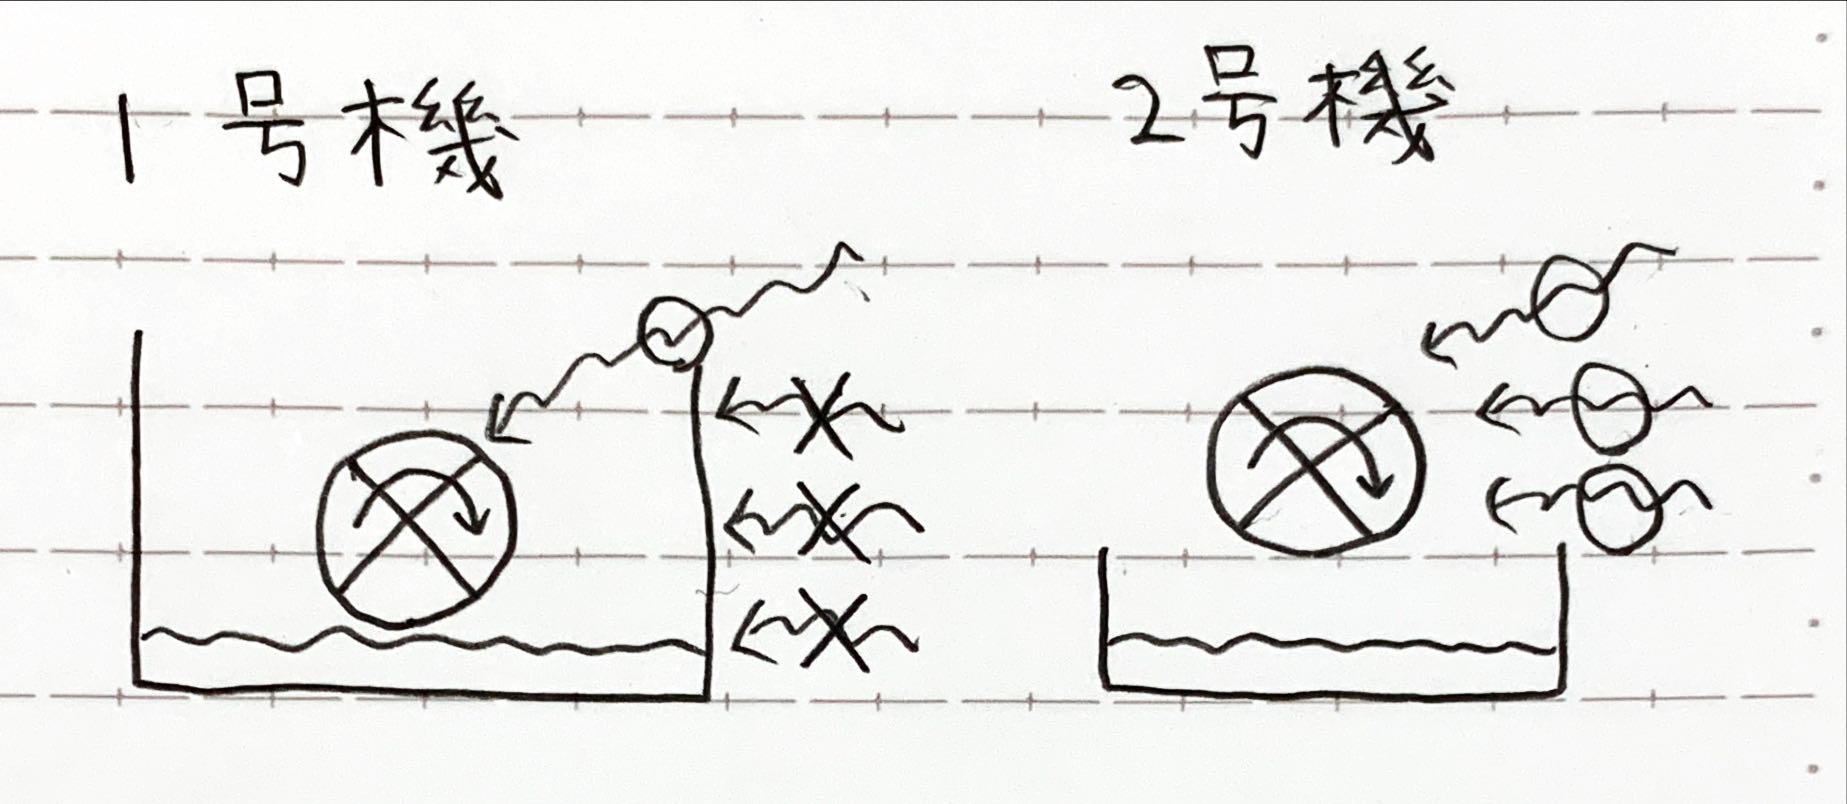 1号機
2号機